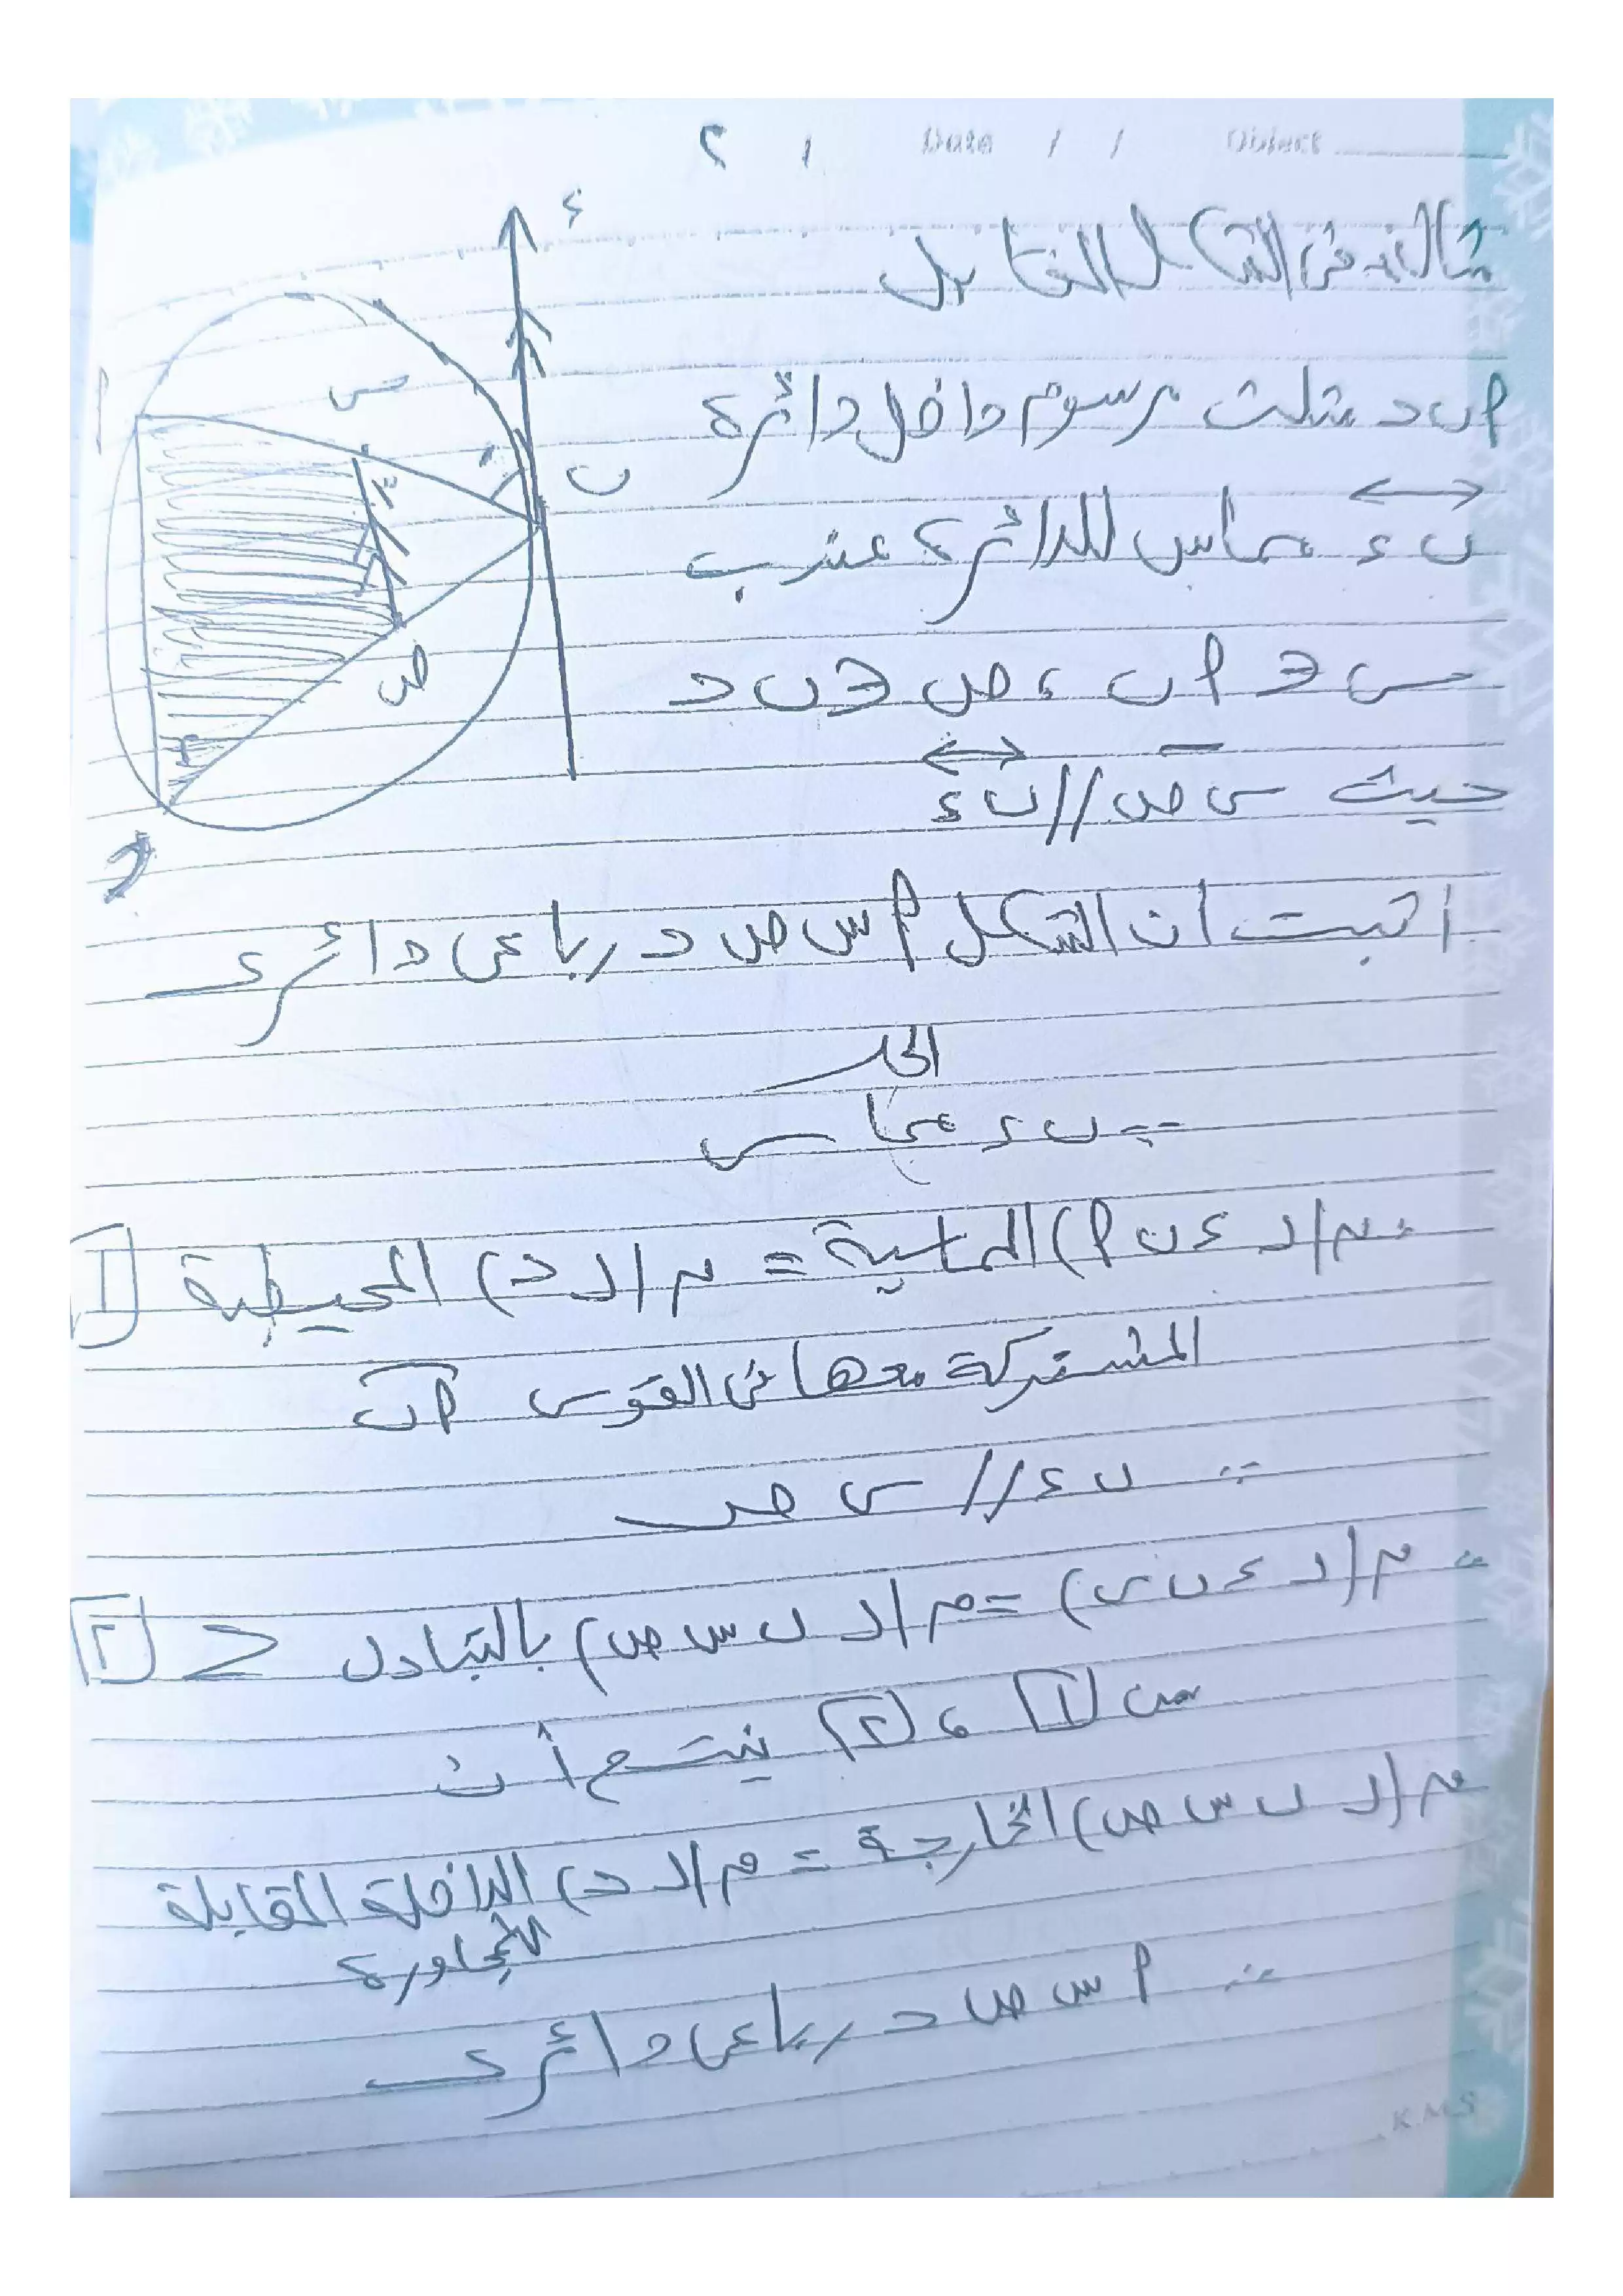 Date / / Object
مثال: فى الشكل المقابل
ء
أ
س
ب
ص
ح
أ ب ح مثلث مرسوم داخل دائرة
ب ء مماس للدائرة عند ب
س ∈ أ ب ، ص ∈ ب ح
حيث س ص // ب ء
اثبت ان الشكل أ س ص ح رباعى دائرى
الحل
∵ ب ء مماس
∴ م(د ء ب أ) المماسية = م(د ح) المحيطية [١]
المشتركة معها فى القوس أ ب
∵ ب ء // س ص
∴ م(د ء ب س) = م(د ب س ص) بالتبادل > [٢]
من [١] ، [٢] ينتج أن
م(د ب س ص) الخارجة = م(د ح) الداخلة المقابلة
للمجاورة
∴ أ س ص ح رباعى دائرى
K.M.S